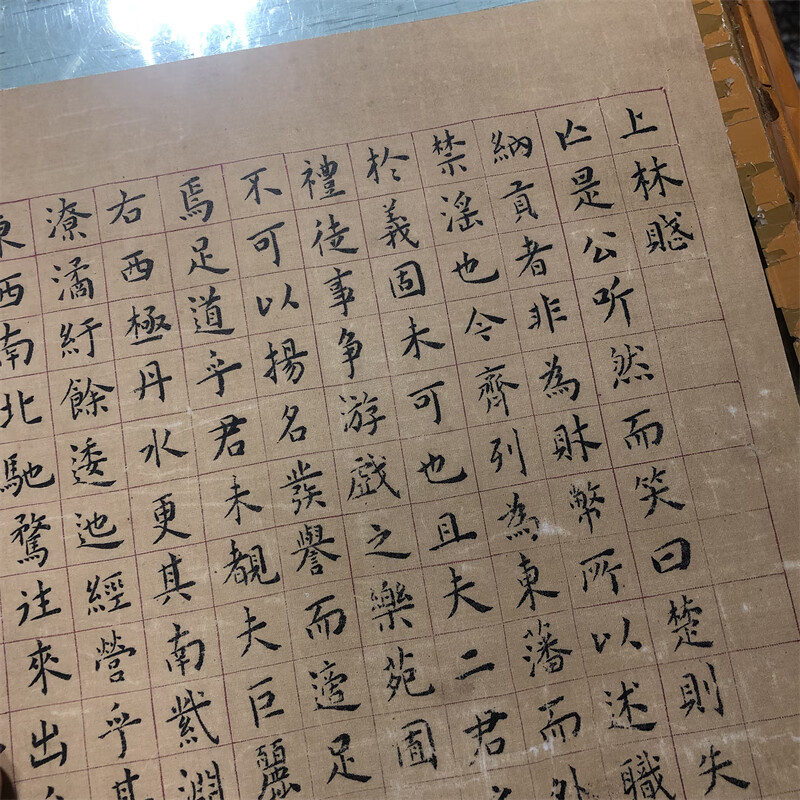 上林賦
亡是公听然而笑曰楚則失
納貢者非為財幣所以述職
禁淫也今齊列為東藩而外
於義固未可也且夫二君之
禮徒事争游戲之樂苑囿
不可以揚名發譽而適足
焉足道乎君未覩夫巨麗
右西極丹水更其南紫淵
潦潏紆餘逶迆經營乎其
東西南北馳騖往來出